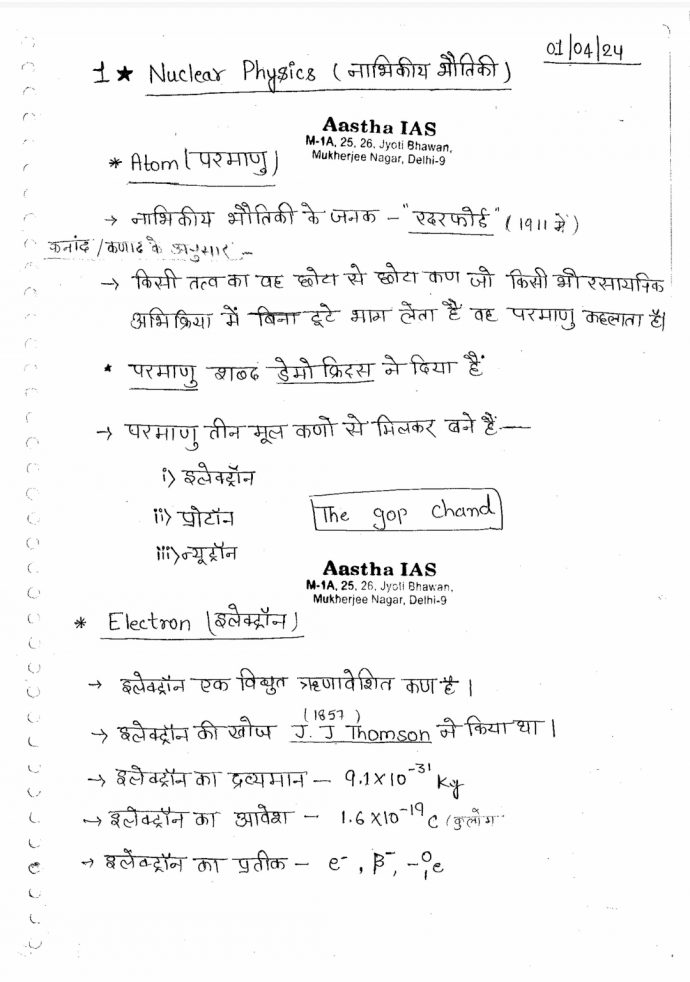 01/04/24
1 ★ Nuclear Physics ( नाभिकीय भौतिकी )
Aastha IAS
M-1A, 25, 26, Jyoti Bhawan,
Mukherjee Nagar, Delhi-9
* Atom (परमाणु)
→ नाभिकीय भौतिकी के जनक - "रदरफोर्ड" (1911 में)
कनांद /कणाद के अनुसार :-
→ किसी तत्व का वह छोटा से छोटा कण जो किसी भी रसायनिक
अभिक्रिया में बिना टूटे भाग लेता है वह परमाणु कहलाता है।
* परमाणु शब्द डेमोक्रिटस ने दिया हैं
→ परमाणु तीन मूल कणो से मिलकर बने हैं —
i) इलेक्ट्रॉन
ii) प्रोटॉन
The gop chand
iii) न्यूट्रॉन
Aastha IAS
M-1A, 25, 26, Jyoti Bhawan,
Mukherjee Nagar, Delhi-9
* Electron (इलेक्ट्रॉन)
→ इलेक्ट्रॉन एक विद्युत ऋणावेशित कण है ।
(1857)
→ इलेक्ट्रॉन की खोज J. J Thomson ने किया था ।
→ इलेक्ट्रॉन का द्रव्यमान - 9.1×10⁻³¹ Kg
→ इलेक्ट्रॉन का आवेश - 1.6×10⁻¹⁹ C (कुलांग
→ इलेक्ट्रॉन का प्रतीक - e⁻, β⁻, ₋₁⁰e